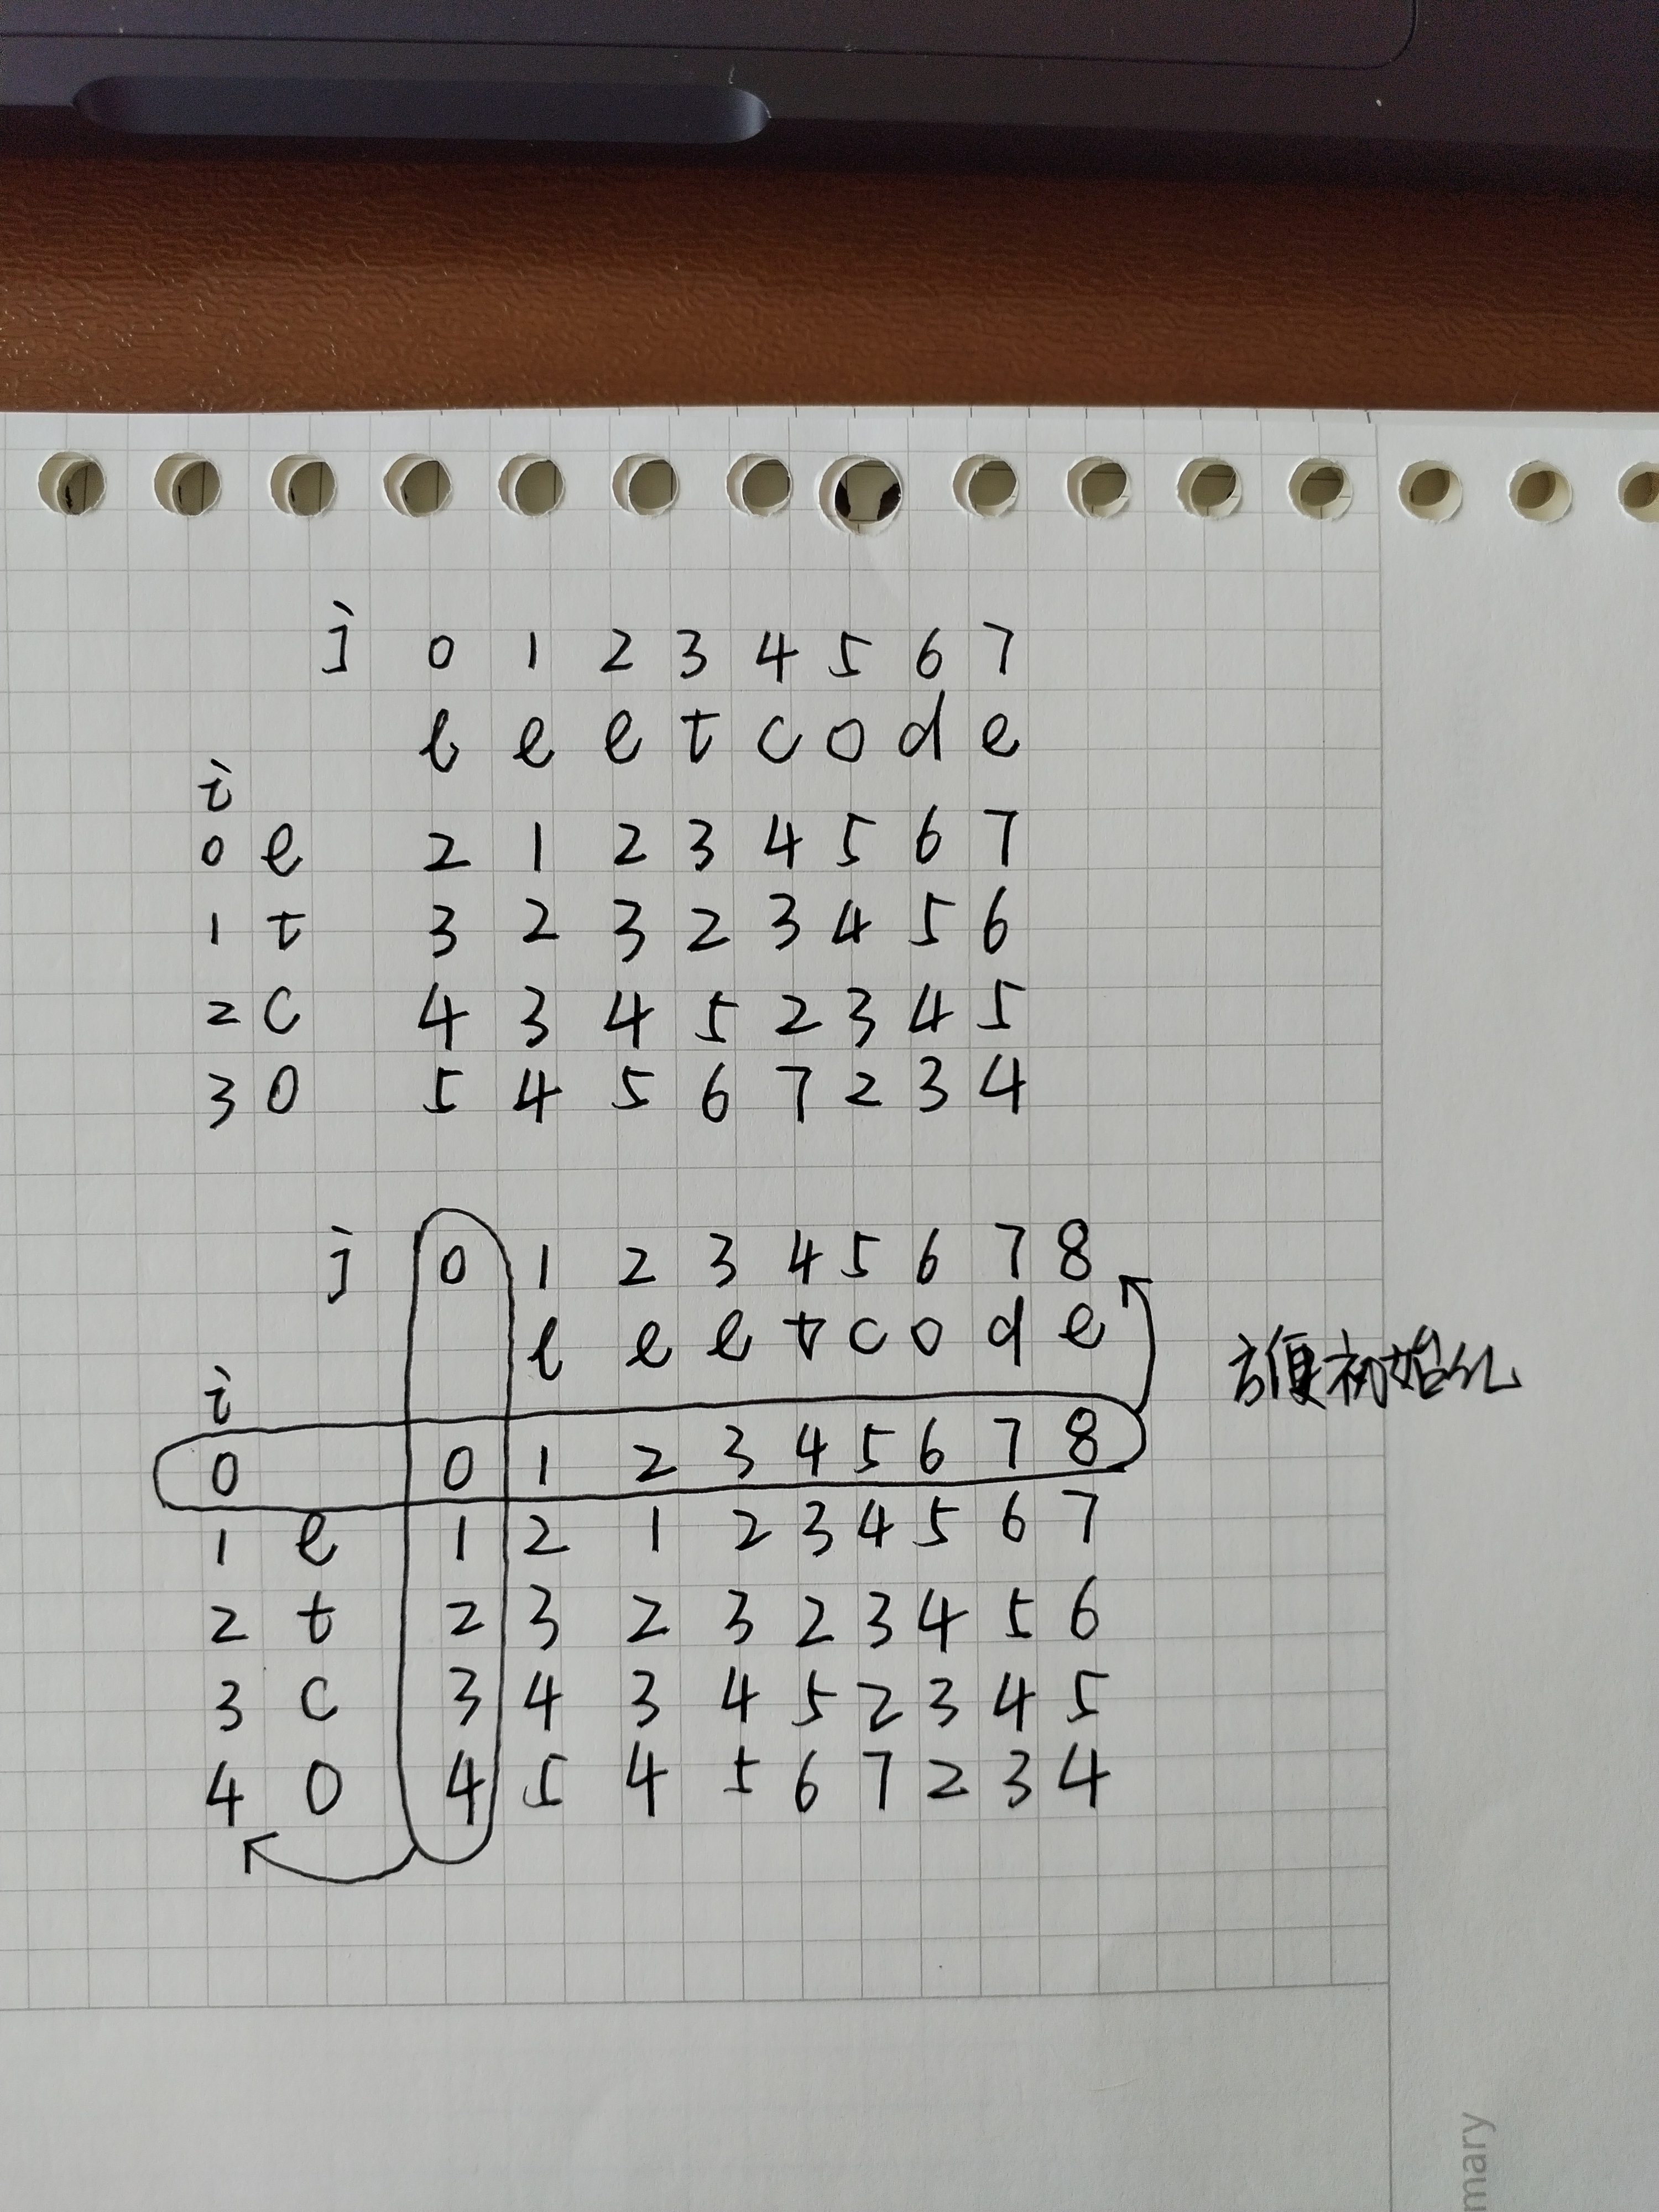 j 0 1 2 3 4 5 6 7
l e e t c o d e
i
0 e 2 1 2 3 4 5 6 7
1 t 3 2 3 2 3 4 5 6
2 c 4 3 4 5 2 3 4 5
3 o 5 4 5 6 7 2 3 4
j 0 1 2 3 4 5 6 7 8
l e e t c o d e
方便初始化
i
0 0 1 2 3 4 5 6 7 8
1 e 1 2 1 2 3 4 5 6 7
2 t 2 3 2 3 2 3 4 5 6
3 c 3 4 3 4 5 2 3 4 5
4 o 4 5 4 5 6 7 2 3 4
mary